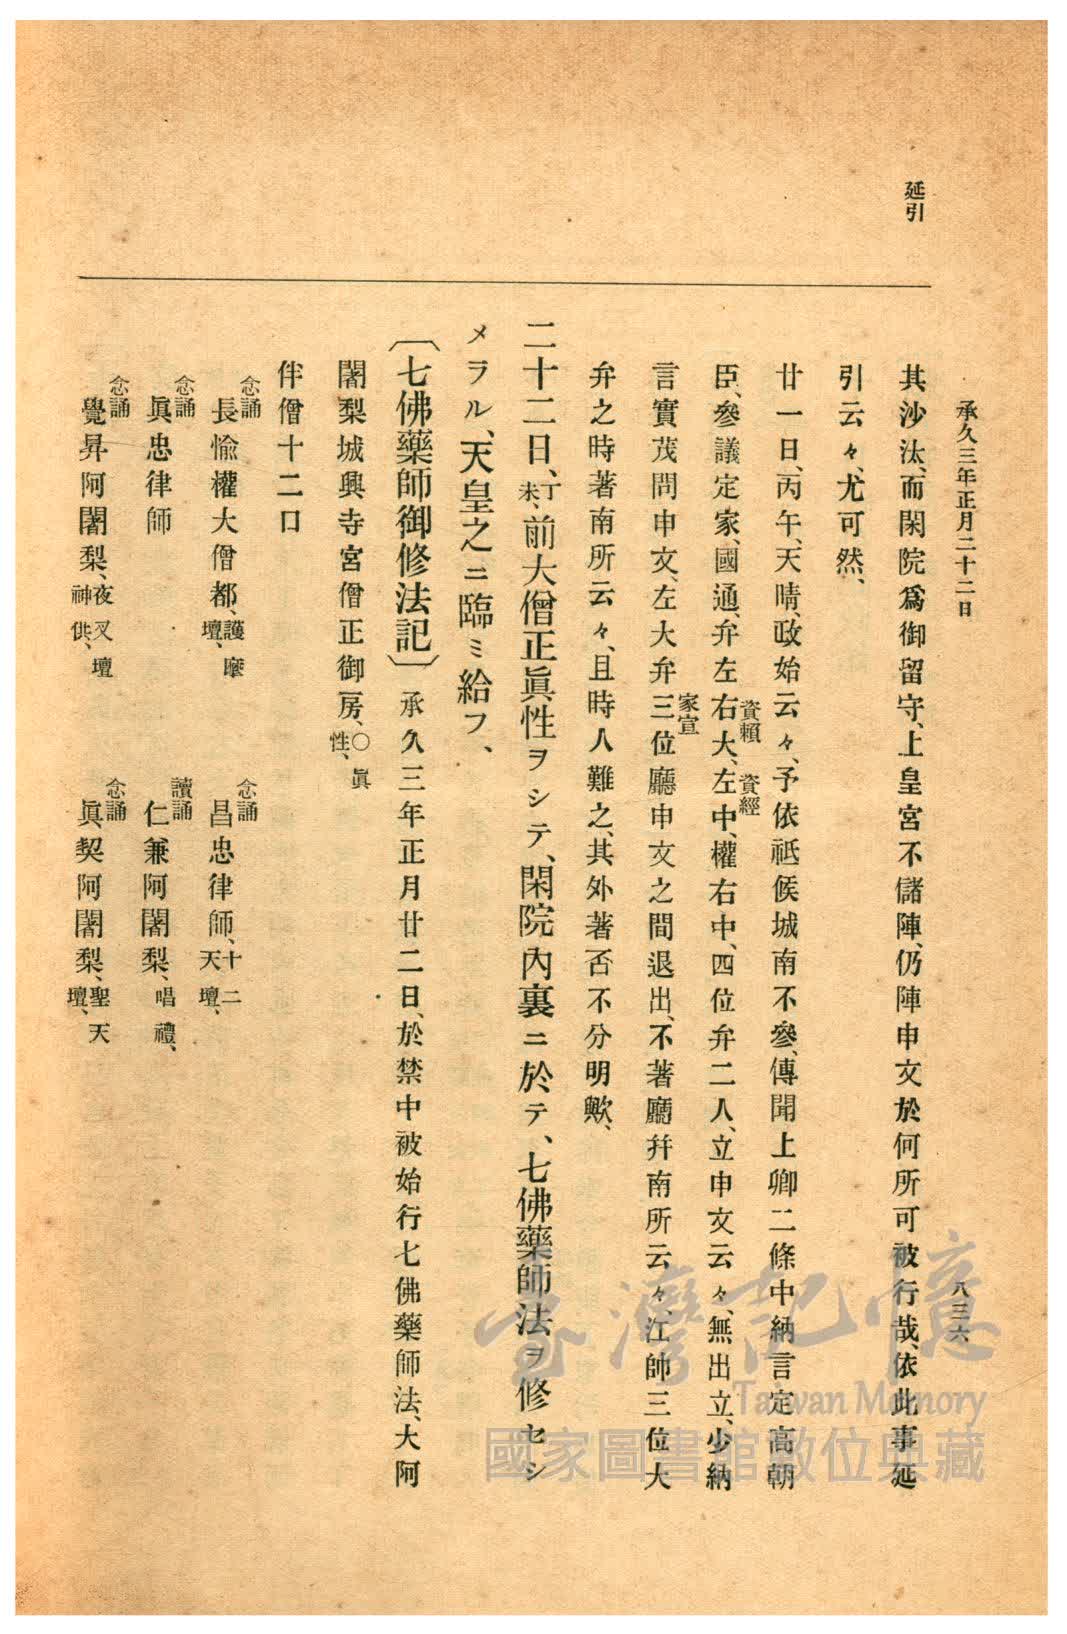 承久三年正月二十二日
八三六
延引
其沙汰、而閑院爲御留守、上皇宮不儲陣、仍陣申文於何所可被行哉、依此事延
引云々、尤可然、
廿一日、丙午、天晴、政始云々、予依祗候城南不參、傳聞上卿二條中納言定高朝
臣、參議定家、國通、弁左右大、資賴左中、資經權右中、四位弁二人、立申文云々、無出立、少納
言實茂問申文、左大弁三位家宣廳申文之間退出、不著廳幷南所云々、江帥三位大
弁之時著南所云々、且時人難之、其外著否不分明歟、
二十二日、丁未、前大僧正眞性ヲシテ、閑院內裏ニ於テ、七佛藥師法ヲ修セシ
メラル、天皇之ニ臨ミ給フ、
〔七佛藥師御修法記〕 承久三年正月廿二日、於禁中被始行七佛藥師法、大阿
闍梨城興寺宮僧正御房、〇眞性、
伴僧十二口
念誦長愉權大僧都、護摩壇、 念誦昌忠律師、十二天壇、
念誦眞忠律師 讀誦仁兼阿闍梨、唱禮、
念誦覺昇阿闍梨、夜叉壇神供、 念誦眞契阿闍梨、聖天壇、
臺灣記憶
Taiwan Memory
國家圖書館數位典藏